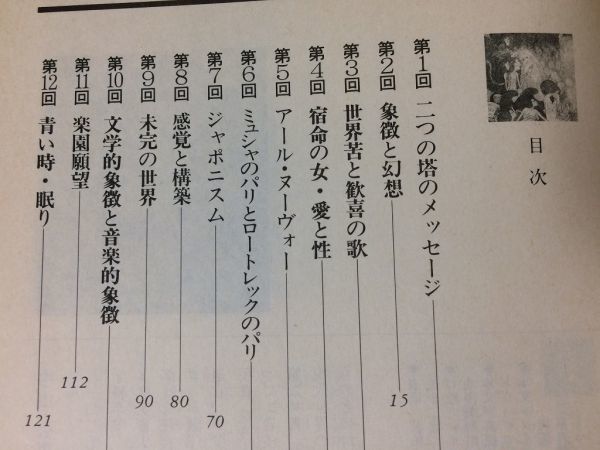 目次
第1回 二つの塔のメッセージ
第2回 象徴と幻想 15
第3回 世界苦と歓喜の歌
第4回 宿命の女・愛と性
第5回 アール・ヌーヴォー
第6回 ミュシャのパリとロートレックのパリ
第7回 ジャポニスム 70
第8回 感覚と構築 80
第9回 未完の世界 90
第10回 文学的象徴と音楽的象徴
第11回 楽園願望 112
第12回 青い時・眠り 121